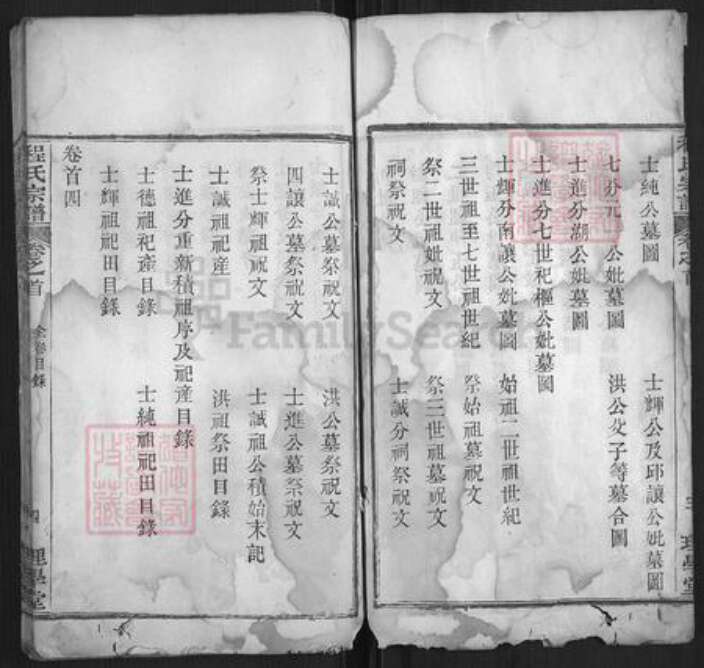 士純公墓圖　士輝公及邱讓公妣墓圖
公妣墓圖　洪公父子等墓合圖
士進分湖公妣墓圖
士進分七世祀樞公妣墓圖
士輝分南讓公妣墓圖　始祖二世祖世紀
三世祖至七世祖世紀　祭始祖墓祝文
祭二世祖妣祝文　祭三世祖墓祝文
祠祭祝文　士誠分祠祭祝文
理學堂
士誠公墓祭祝文　洪公墓祭祝文
四讓公墓祭祝文　士進公墓祭祝文
祭士輝祖祝文　士誠祖公積始末記
士誠祖祀產　洪祖祭田目錄
士進分重新積祖序及祀產目錄
士德祖祀產目錄　士純祖祀田目錄
士輝祖祀田目錄
卷首四
程氏宗譜　卷之首　全卷目錄　四　理學堂
FamilySearch